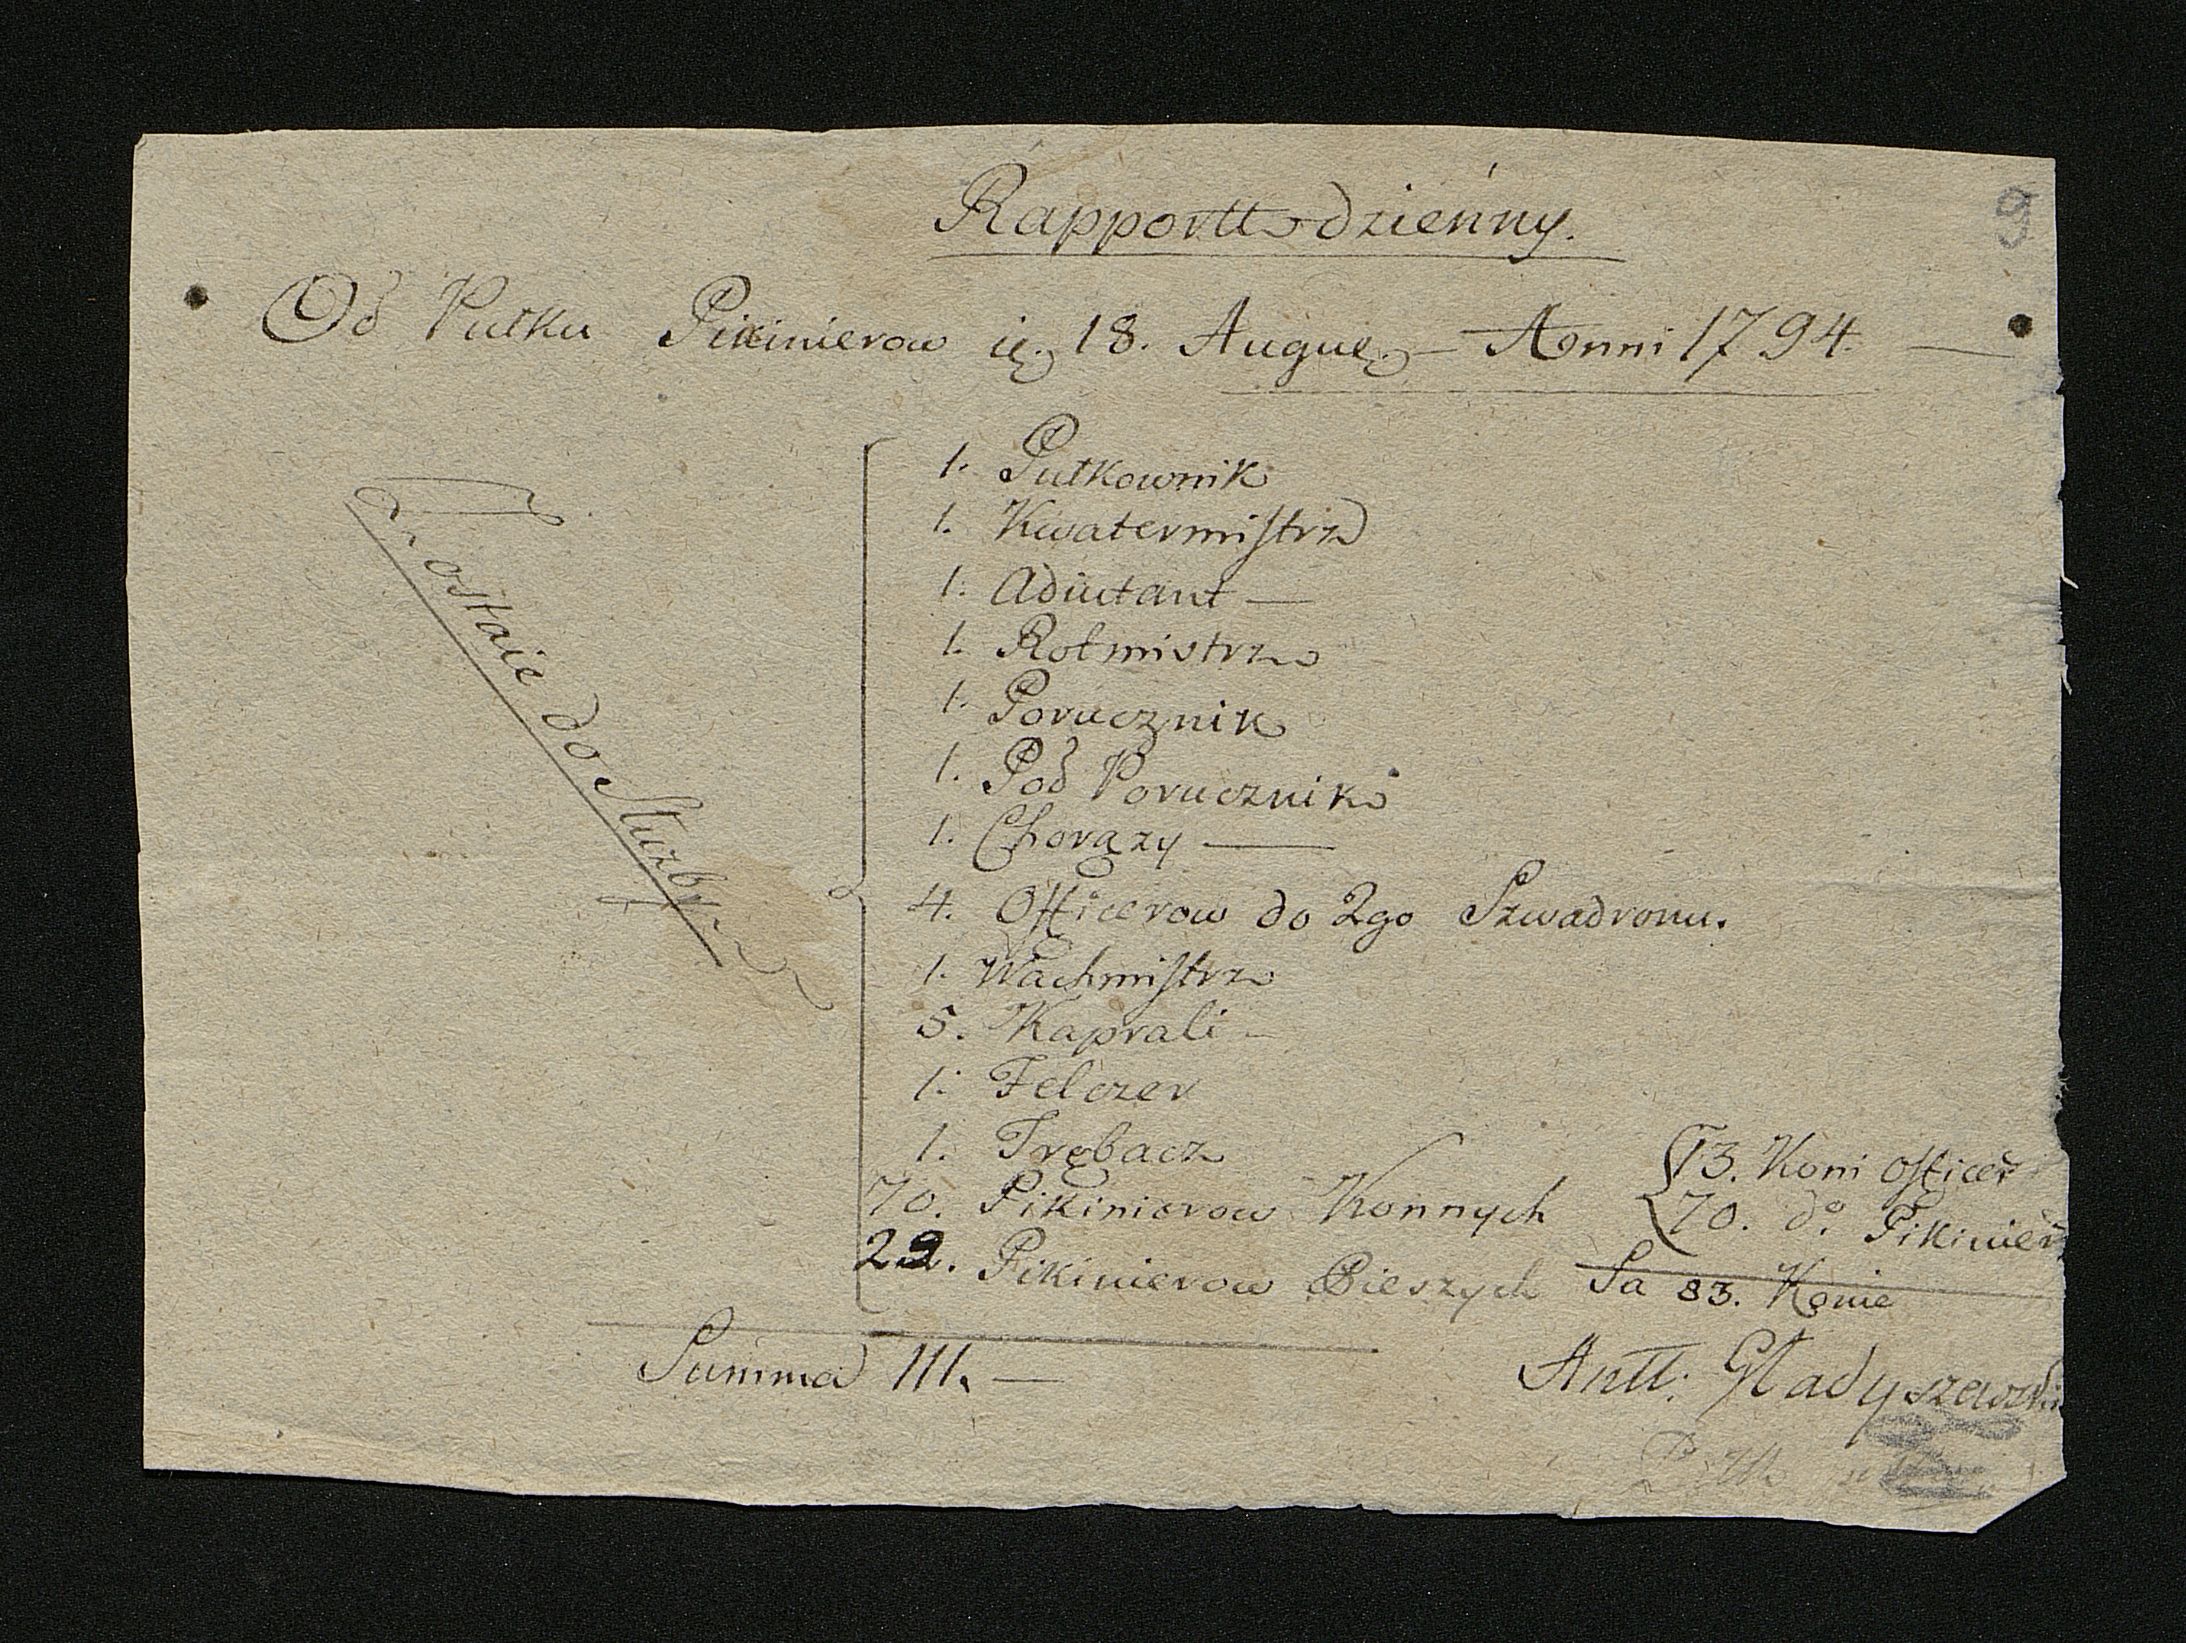 Rapportt dzieńny.
9
Od Pułku Pikinierow ię. 18. Augue. — Anni 1794. —
Zostaie do Służby.
1. Pułkownik
1. Kwatermistrz
1. Adiutant —
1. Rotmistrz
1. Porucznik
1. Pod Porucznik
1. Chorązy —
4. Officerow do 2go Szwadronu.
1. Wachmistrz
5. Kaprali —
1. Felczer
1. Trębacz
70. Pikinierow Konnych
13. Koni officer
70. do. Pikinier
22. Pikinierow Pieszych
Sa 83. Konie
Summa 111. —
Antt: Gładyszewski